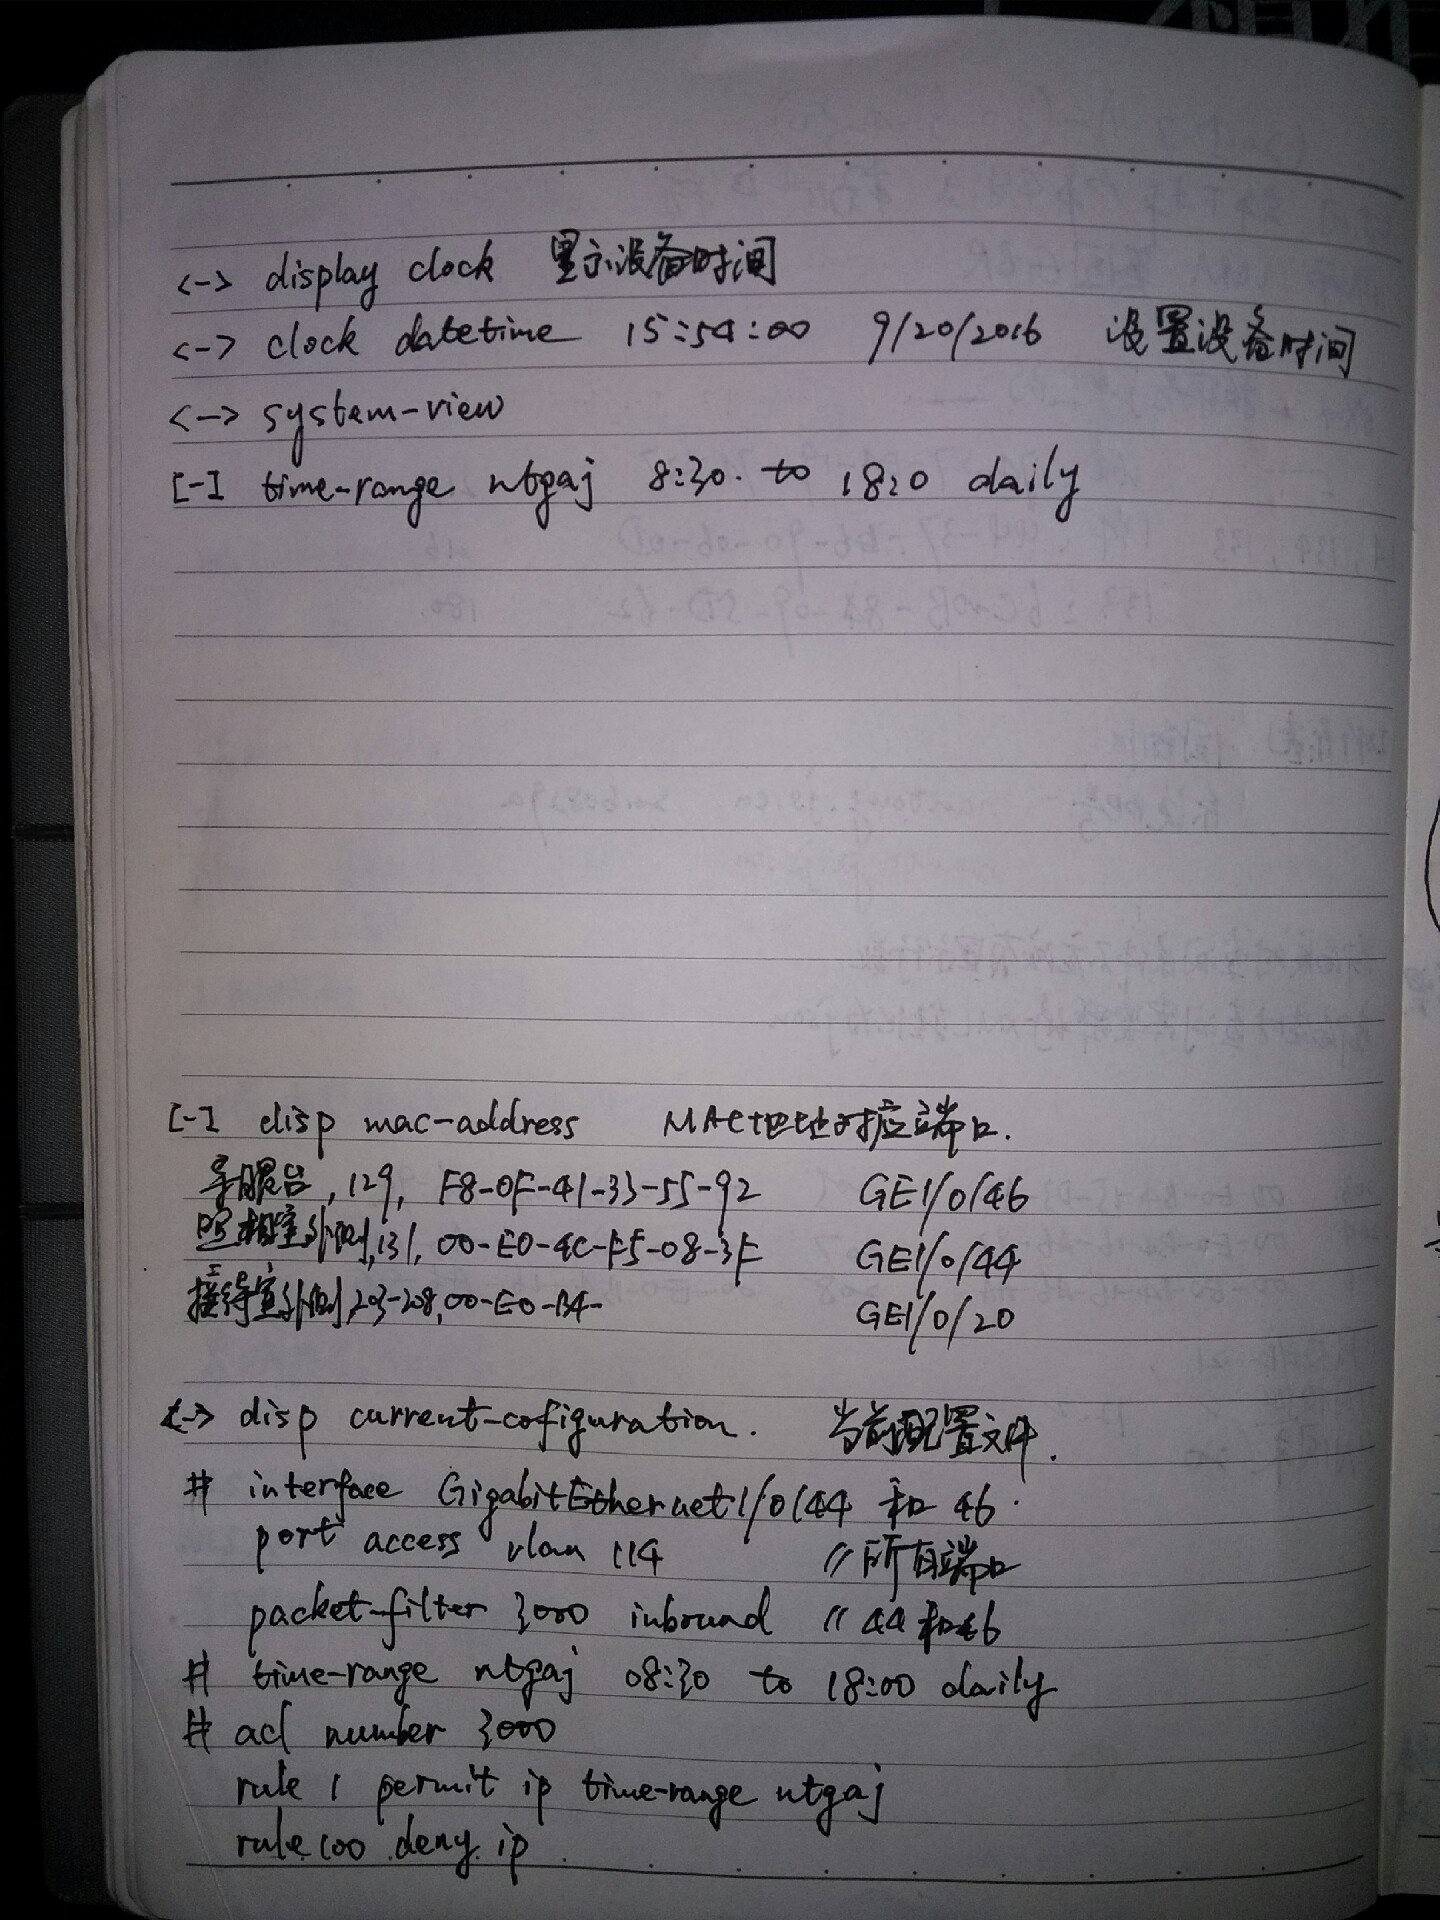 <-> display clock 显示设备时间
<-> clock datetime 15:54:00 9/20/2016 设置设备时间
<-> system-view
[-] time-range ntgaj 8:30 to 18:0 daily
[-] disp mac-address MAC地址对应端口.
导服台, 129, F8-0F-41-33-55-92 GE1/0/46
照相室外侧, 131, 00-E0-4C-F5-08-3F GE1/0/44
接待室外侧, 203-208, 00-E0-B4- GE1/0/20
<-> disp current-cofiguration. 当前配置文件.
# interface GigabitEthernet1/0/44 和 46.
port access vlan 114 //所有端口
packet-filter 3000 inbound //44和46
# time-range ntgaj 08:30 to 18:00 daily
# acl number 3000
rule 1 permit ip time-range ntgaj
rule 100 deny ip